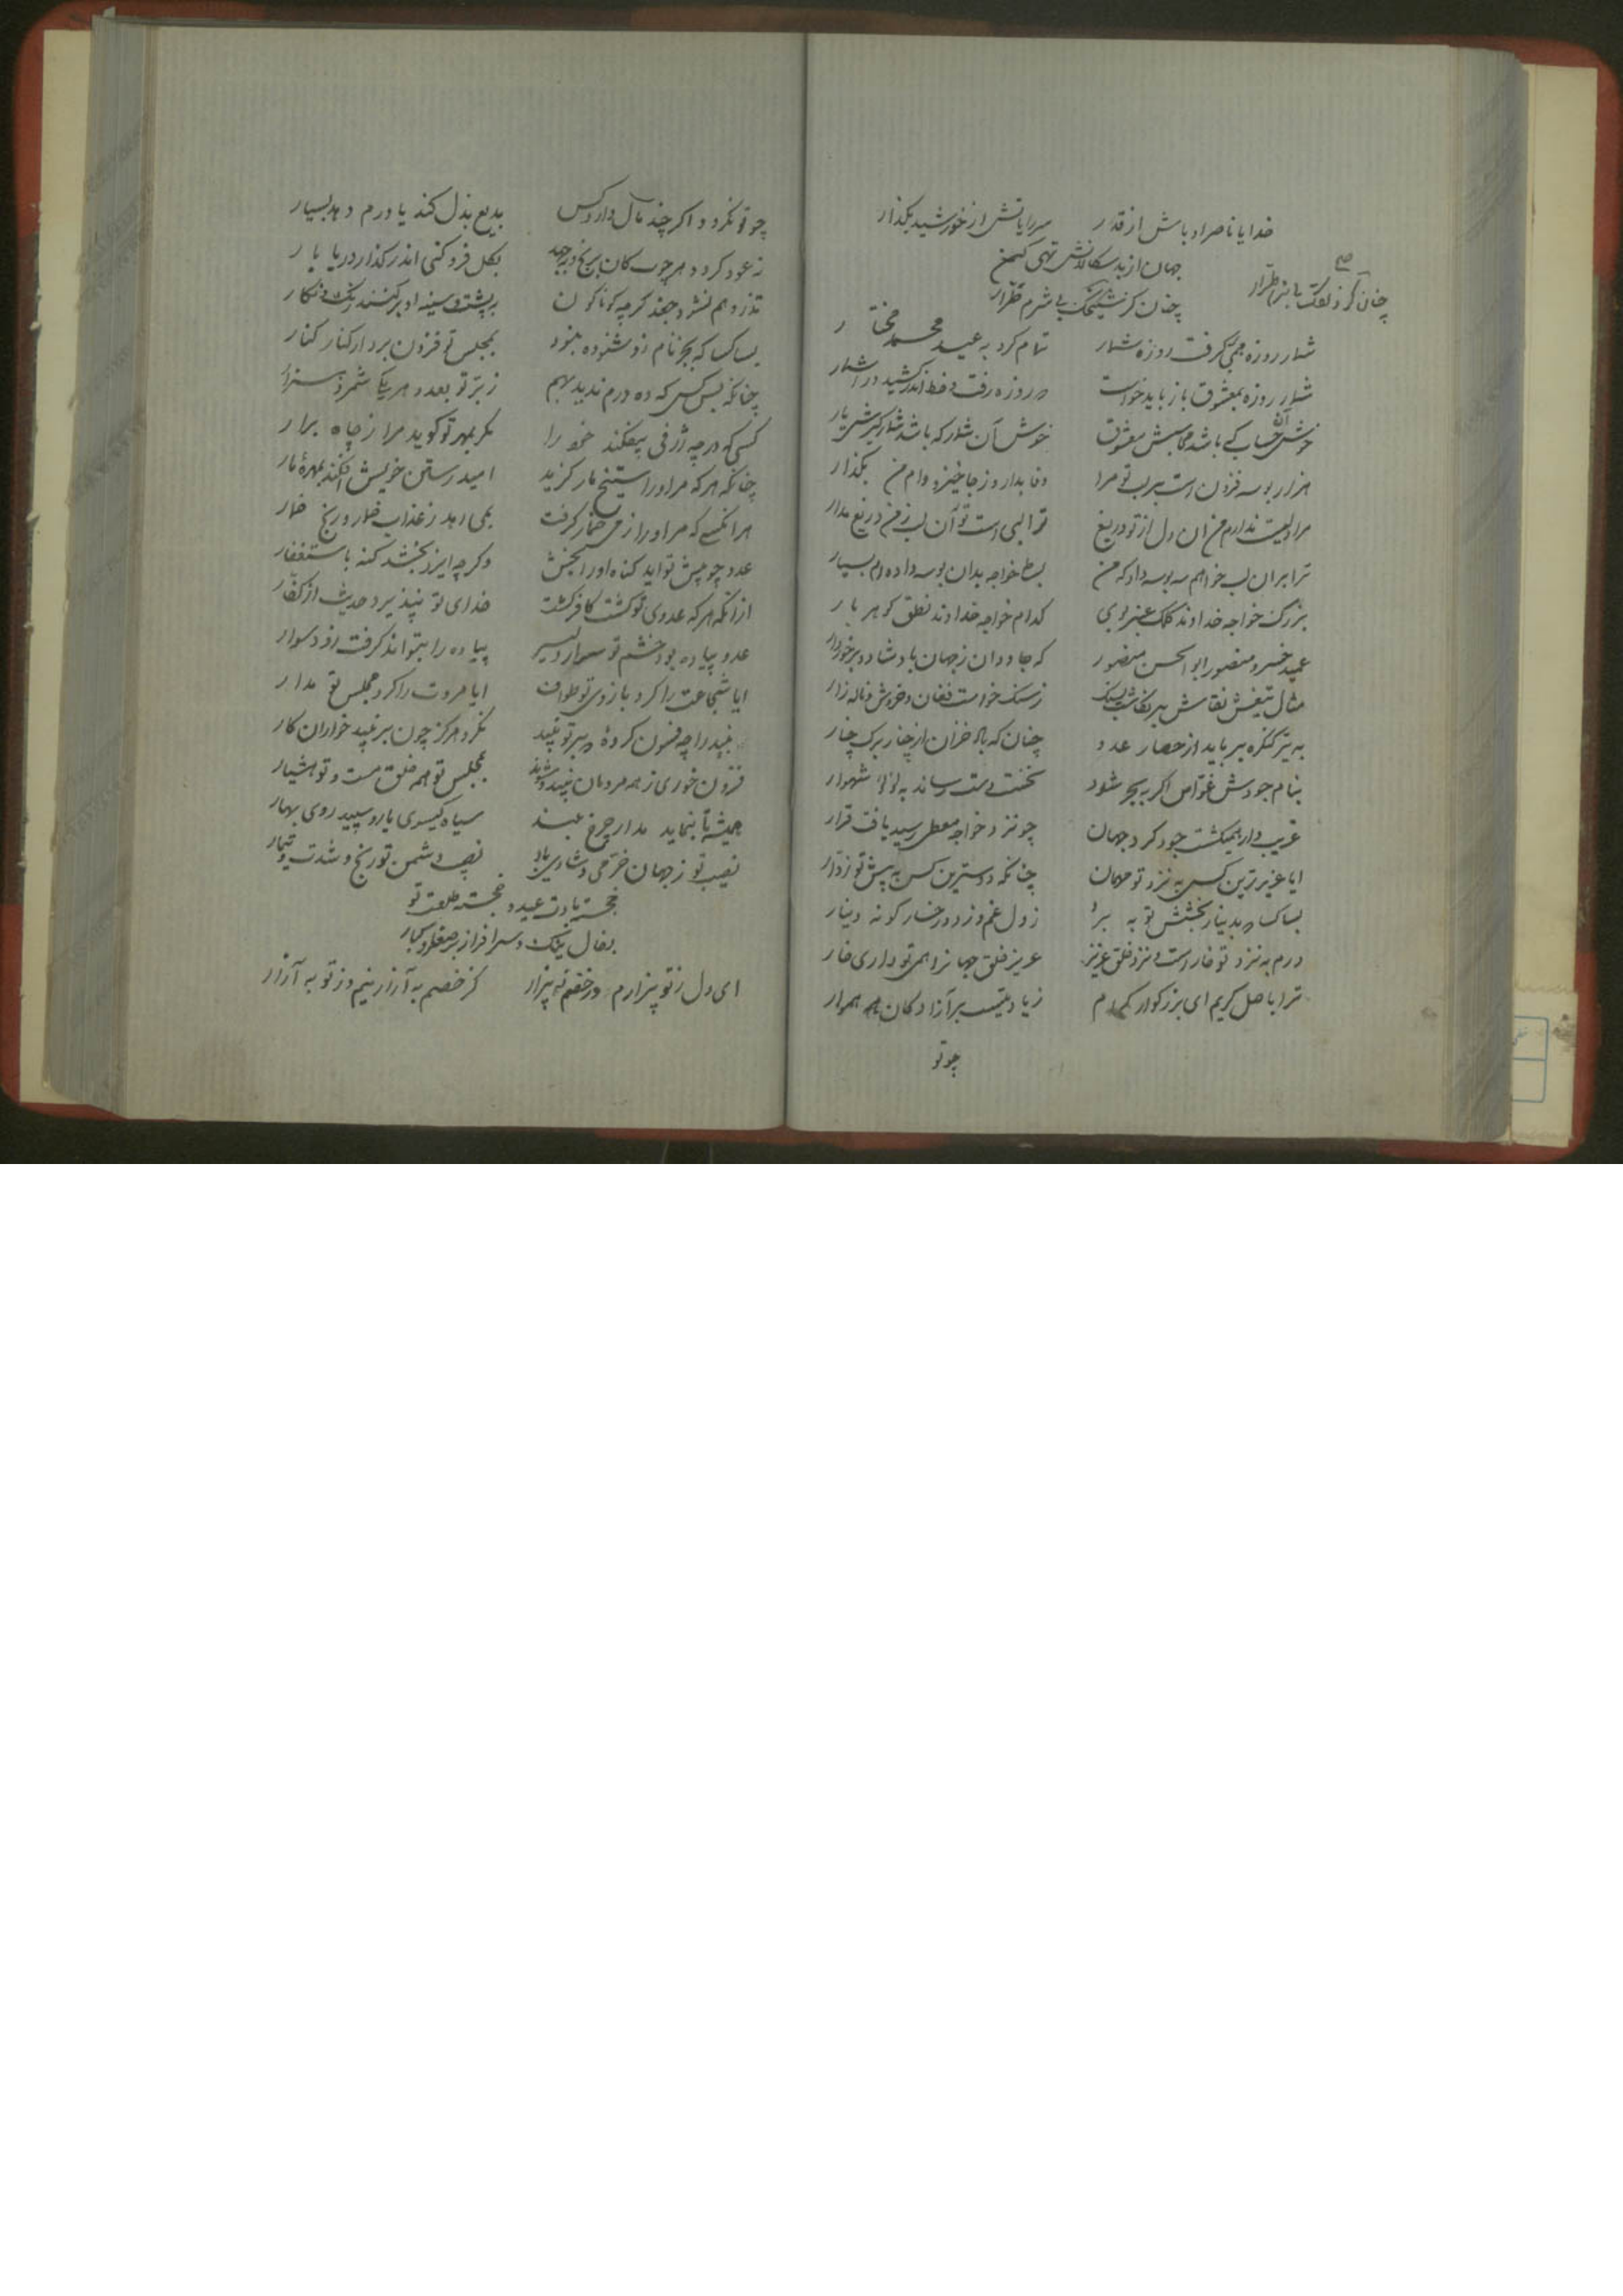 خدایا ناصر او باش از قدر سر رایاتش از خورشید بگذار
جهان از بدسگالانش تهی کن
چنان کز
شمار روزه همی برگرفت روزه شمار تمام کرد به عید محمد مختار
شمار روزه بمعشوق باز باید خواست در روزه رفت و خط اندر کشید در اشمار
خوش آن حساب که باشد محاسبش معشوق خوش آن شمار که باشد شمارگیرش یار
هزار بوسه فزون است بر لب تو مرا وفا بدار و ز جا خیز و وام من بگذار
مرا دلیست ندارم من آن دل از تو دریغ ترا لبی است تو آن لب ز من دریغ مدار
ترا بران لب خواهم سه بوسه داد که من بسی خواجه بدان بوسه داده‌ام بسیار
بزرگ خواجه خداوند کلک عنبر بوی کدام خواجه خداوند نطق گوهر بار
عمید خسرو منصور ابوالحسن منصور که جاودان ز جهان باد شاد و برخوردار
مثال تیغش نقاش بر نگاشت بسنگ ز سنگ خواست فغان و خروش و ناله زار
به تیر کنگره برباید از حصار عدو چنان که باد خزان از چنار برگ چنار
بنام جودش غواص اگر به بحر شود نخست دست رساند به لؤلؤ شهوار
غریب وار همیگشت جود گرد جهان چو نزد خواجه معطی رسید یافت قرار
ایا عزیزترین کس به نزد تو مهمان چنانکه دوسترین کس به پیش تو زوار
بسا کسا که بدینار بخشش تو به برد ز دل غم و ز دو رخسار گونه دینار
درم به نزد تو خار است و نزد خلق عزیز عزیز خلق جهانرا همی تو داری خوار
ترا باصل کریم ای بزرگوار کرام زیادتیست بر آزادگان همه هموار
چو تو
چو تو نگردد اگر چند مال دارد کس بدیع بذل کند یا درم دهد بسیار
نه عود گردد هر چوب کان برنج و بجهد بگل فرو کنی اندر کنار دریا بار
تذرو هم نشود جغد گرچه گوناگون بپشت و سینه او بر کنند رنگ و نگار
بسا کسا که بجز نام زر شنوده نبود بمجلس تو فزون برد از کنار کنار
چنانکه بس کس که ده درم ندید بهم ز بر تو بعدد هر یکی شمرد هزار
کسی که در چه ژرفی بیفکند خود را مگر بمهر تو گوید مرا ز چاه برار
چنانکه هر که مر او را ستیخ مار گزید امید رستن خویش افکند بمهره مار
هر انکسی که مر او را ز می خمار گرفت بمی رهد ز عذاب خمار و رنج خمار
عدو چو پیش تو اید گناه او را بخش وگر چه ایزد بخشد گنه باستغفار
از آنکه هر که عدوی تو گشت کافر گشت خدای تو نپذیرد حدیث از کفار
عدو پیاده بود خشم تو سوار دلیر پیاده را بتواند گرفت زود سوار
ایا شجاعت را گرد بازوی تو طواف ایا مروت را گرد مجلس تو مدار
نبید را چه فسون کرده پیر تو نبید نگردد هرگز چون بر نبید خواران کار
فزون خوری ز همه مردمان نبید و شوند بمجلس تو همه خلق مست و تو هشیار
همیشه تا بنماید مدار چرخ بلند سیاه گیسوی یار و سپید روی بهار
نصیب تو ز جهان خرمی و شادی باد نصیب دشمن تو رنج و شدت و تیمار
خجسته بادت عید و خجسته طلعت تو
بفال نیک و سرافراز بر صغار و کبار
ای دل ز تو بیزارم و ز خصم نه بیزار کز خصم به آزار نیم و ز تو به آزار